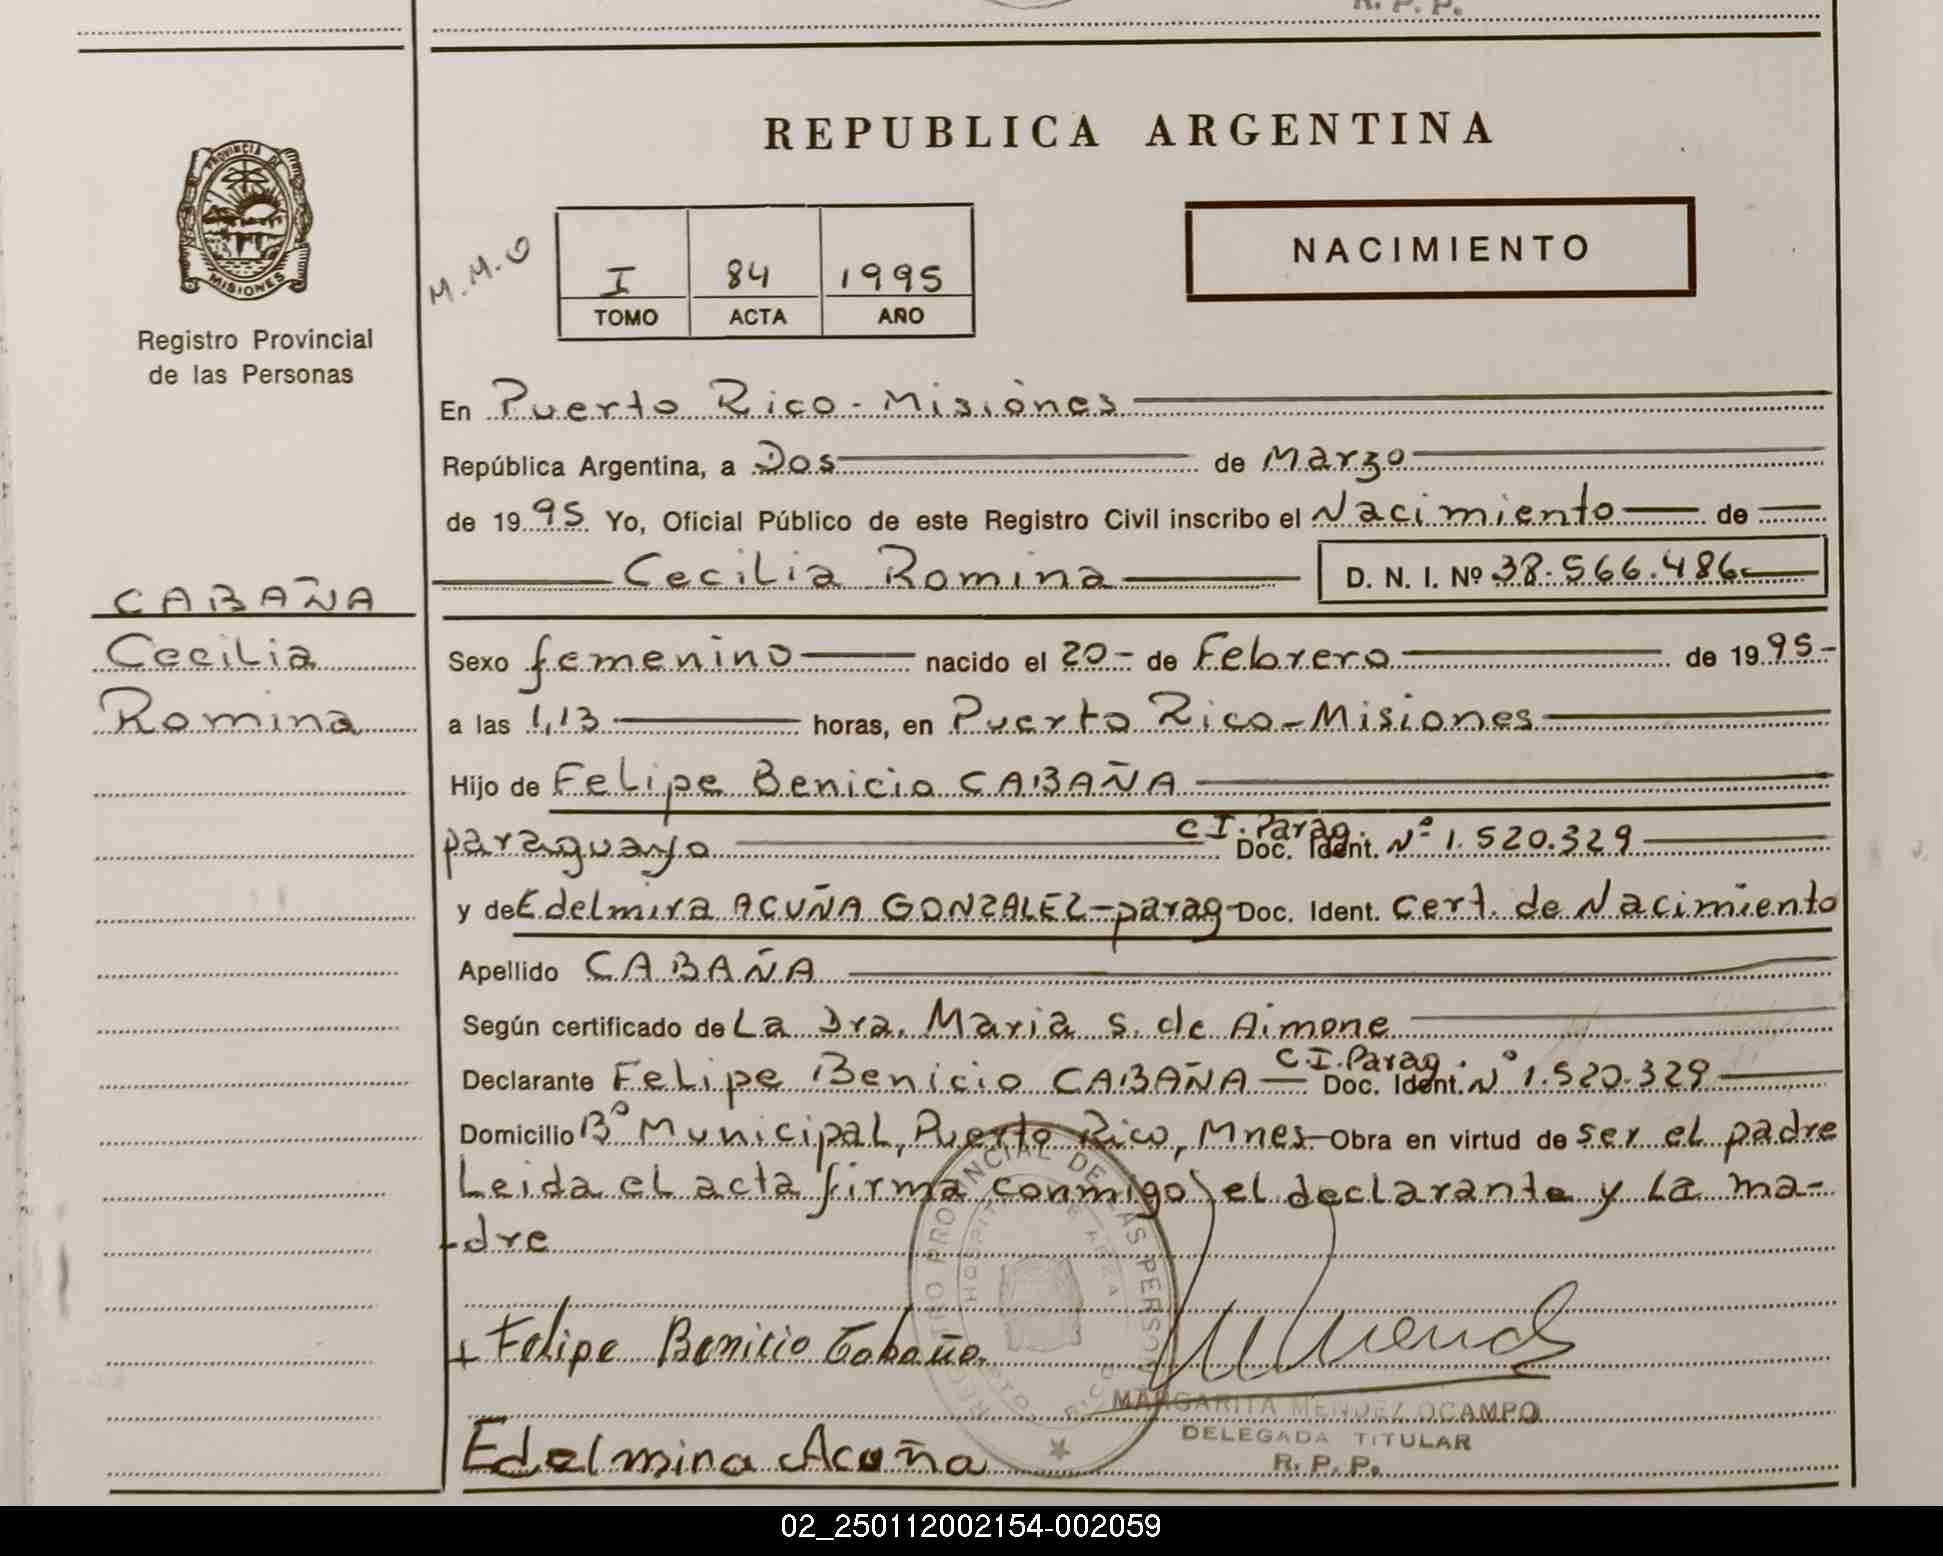 R. P. P.
REPUBLICA ARGENTINA
PROVINCIA DE
MISIONES
Registro Provincial
de las Personas
M.M.O
I 84 1995
TOMO ACTA AÑO
NACIMIENTO
En Puerto Rico - Misiones
República Argentina, a Dos de Marzo
de 1995 Yo, Oficial Público de este Registro Civil inscribo el Nacimiento de
Cecilia Romina D. N. I. Nº 38.566.486
CABAÑA
Cecilia
Romina
Sexo femenino nacido el 20 - de Febrero de 1995 -
a las 1,13 horas, en Puerto Rico - Misiones
Hijo de Felipe Benicio CABAÑA
paraguayo C.I. Parag. Doc. Ident. Nº 1.520.329
y de Edelmira ACUÑA GONZALEZ - parag - Doc. Ident. Cert. de Nacimiento
Apellido CABAÑA
Según certificado de La Dra. Maria S. de Aimone
Declarante Felipe Benicio CABAÑA C.I. Parag. Doc. Ident. Nº 1.520.329
Domicilio Bº Municipal, Puerto Rico, Mnes - Obra en virtud de ser el padre
Leida el acta firma conmigo el declarante y la ma-
-dre
REGISTRO PROVINCIAL DE LAS PERSONAS
HOSPITAL DE AREA
PTO. RICO
+ Felipe Benicio Cabaña
MARGARITA MENDEZ OCAMPO
DELEGADA TITULAR
R. P. P.
Edelmina Acuña
02_250112002154-002059